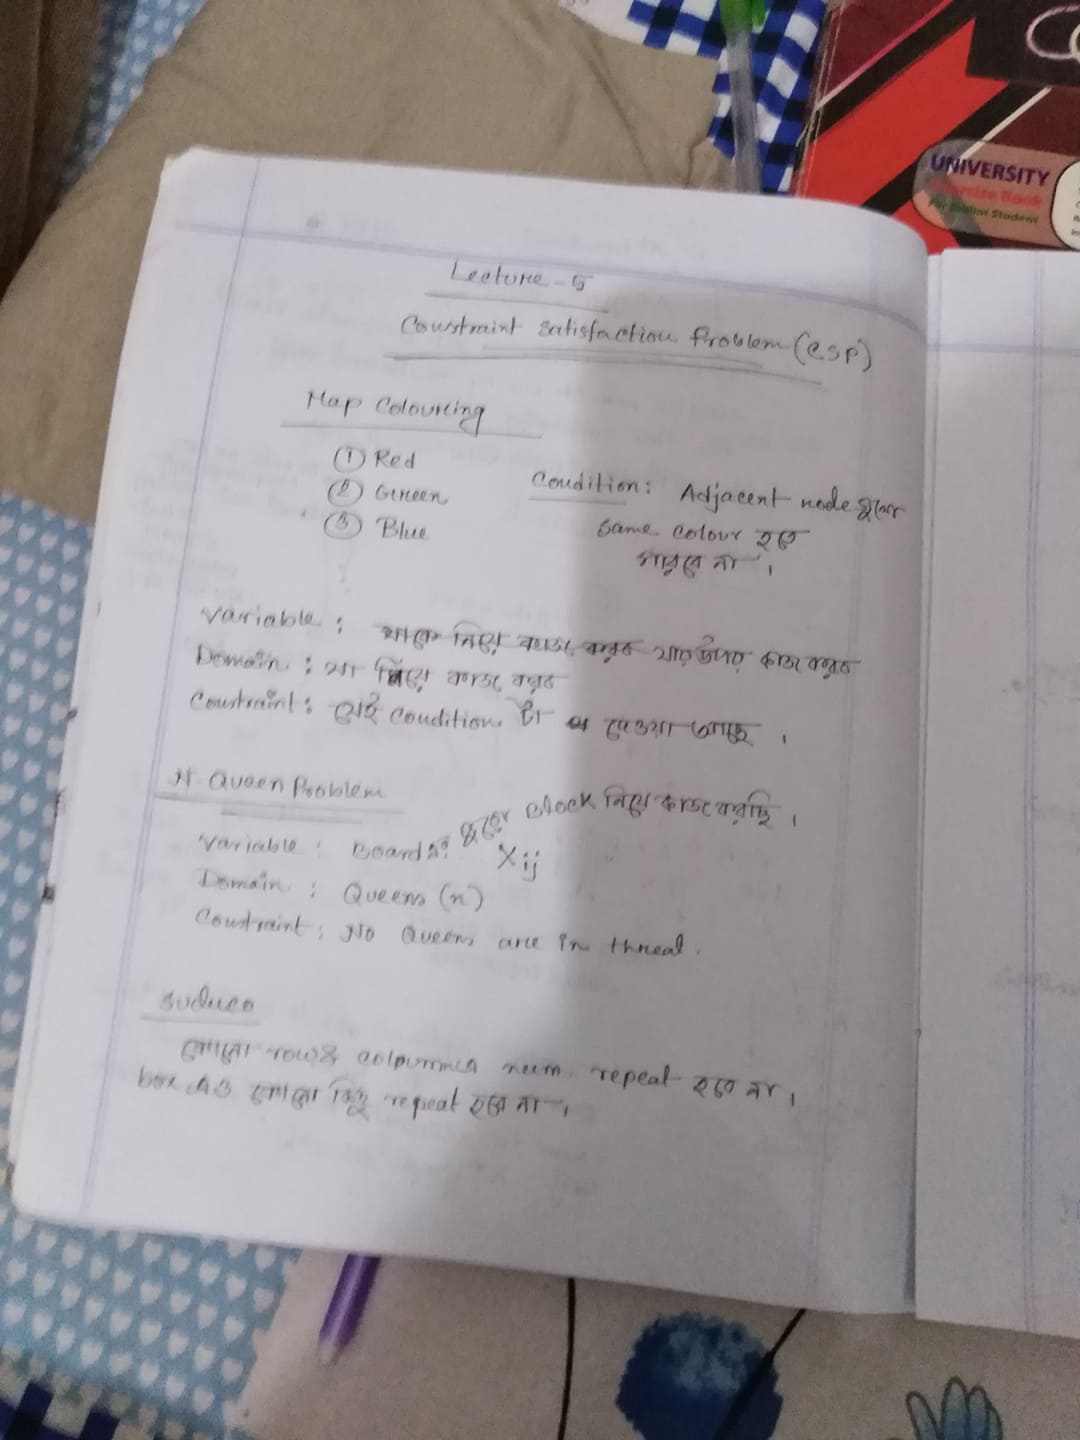 UNIVERSITY
Exercise Book
Student
Lecture - 5
Constraint Satisfaction Problem (CSP)
Map Colouring
① Red
② Green
③ Blue
Condition: Adjacent node গুলোর
same colour হতে
পারবে না।
Variable : যার উপর কাজ করব
Domain : যা দিয়ে কাজ করব
Constraint : যেই condition টা দেওয়া আছে।
N Queen Problem
Variable : Board এর block নিয়ে কাজ করছি।
Xij
Domain : Queens (n)
Constraint : No Queens are in threat.
Suduco
কোনো row & num. repeat হবে না।
box এও কোনো কিছু repeat হবে না।